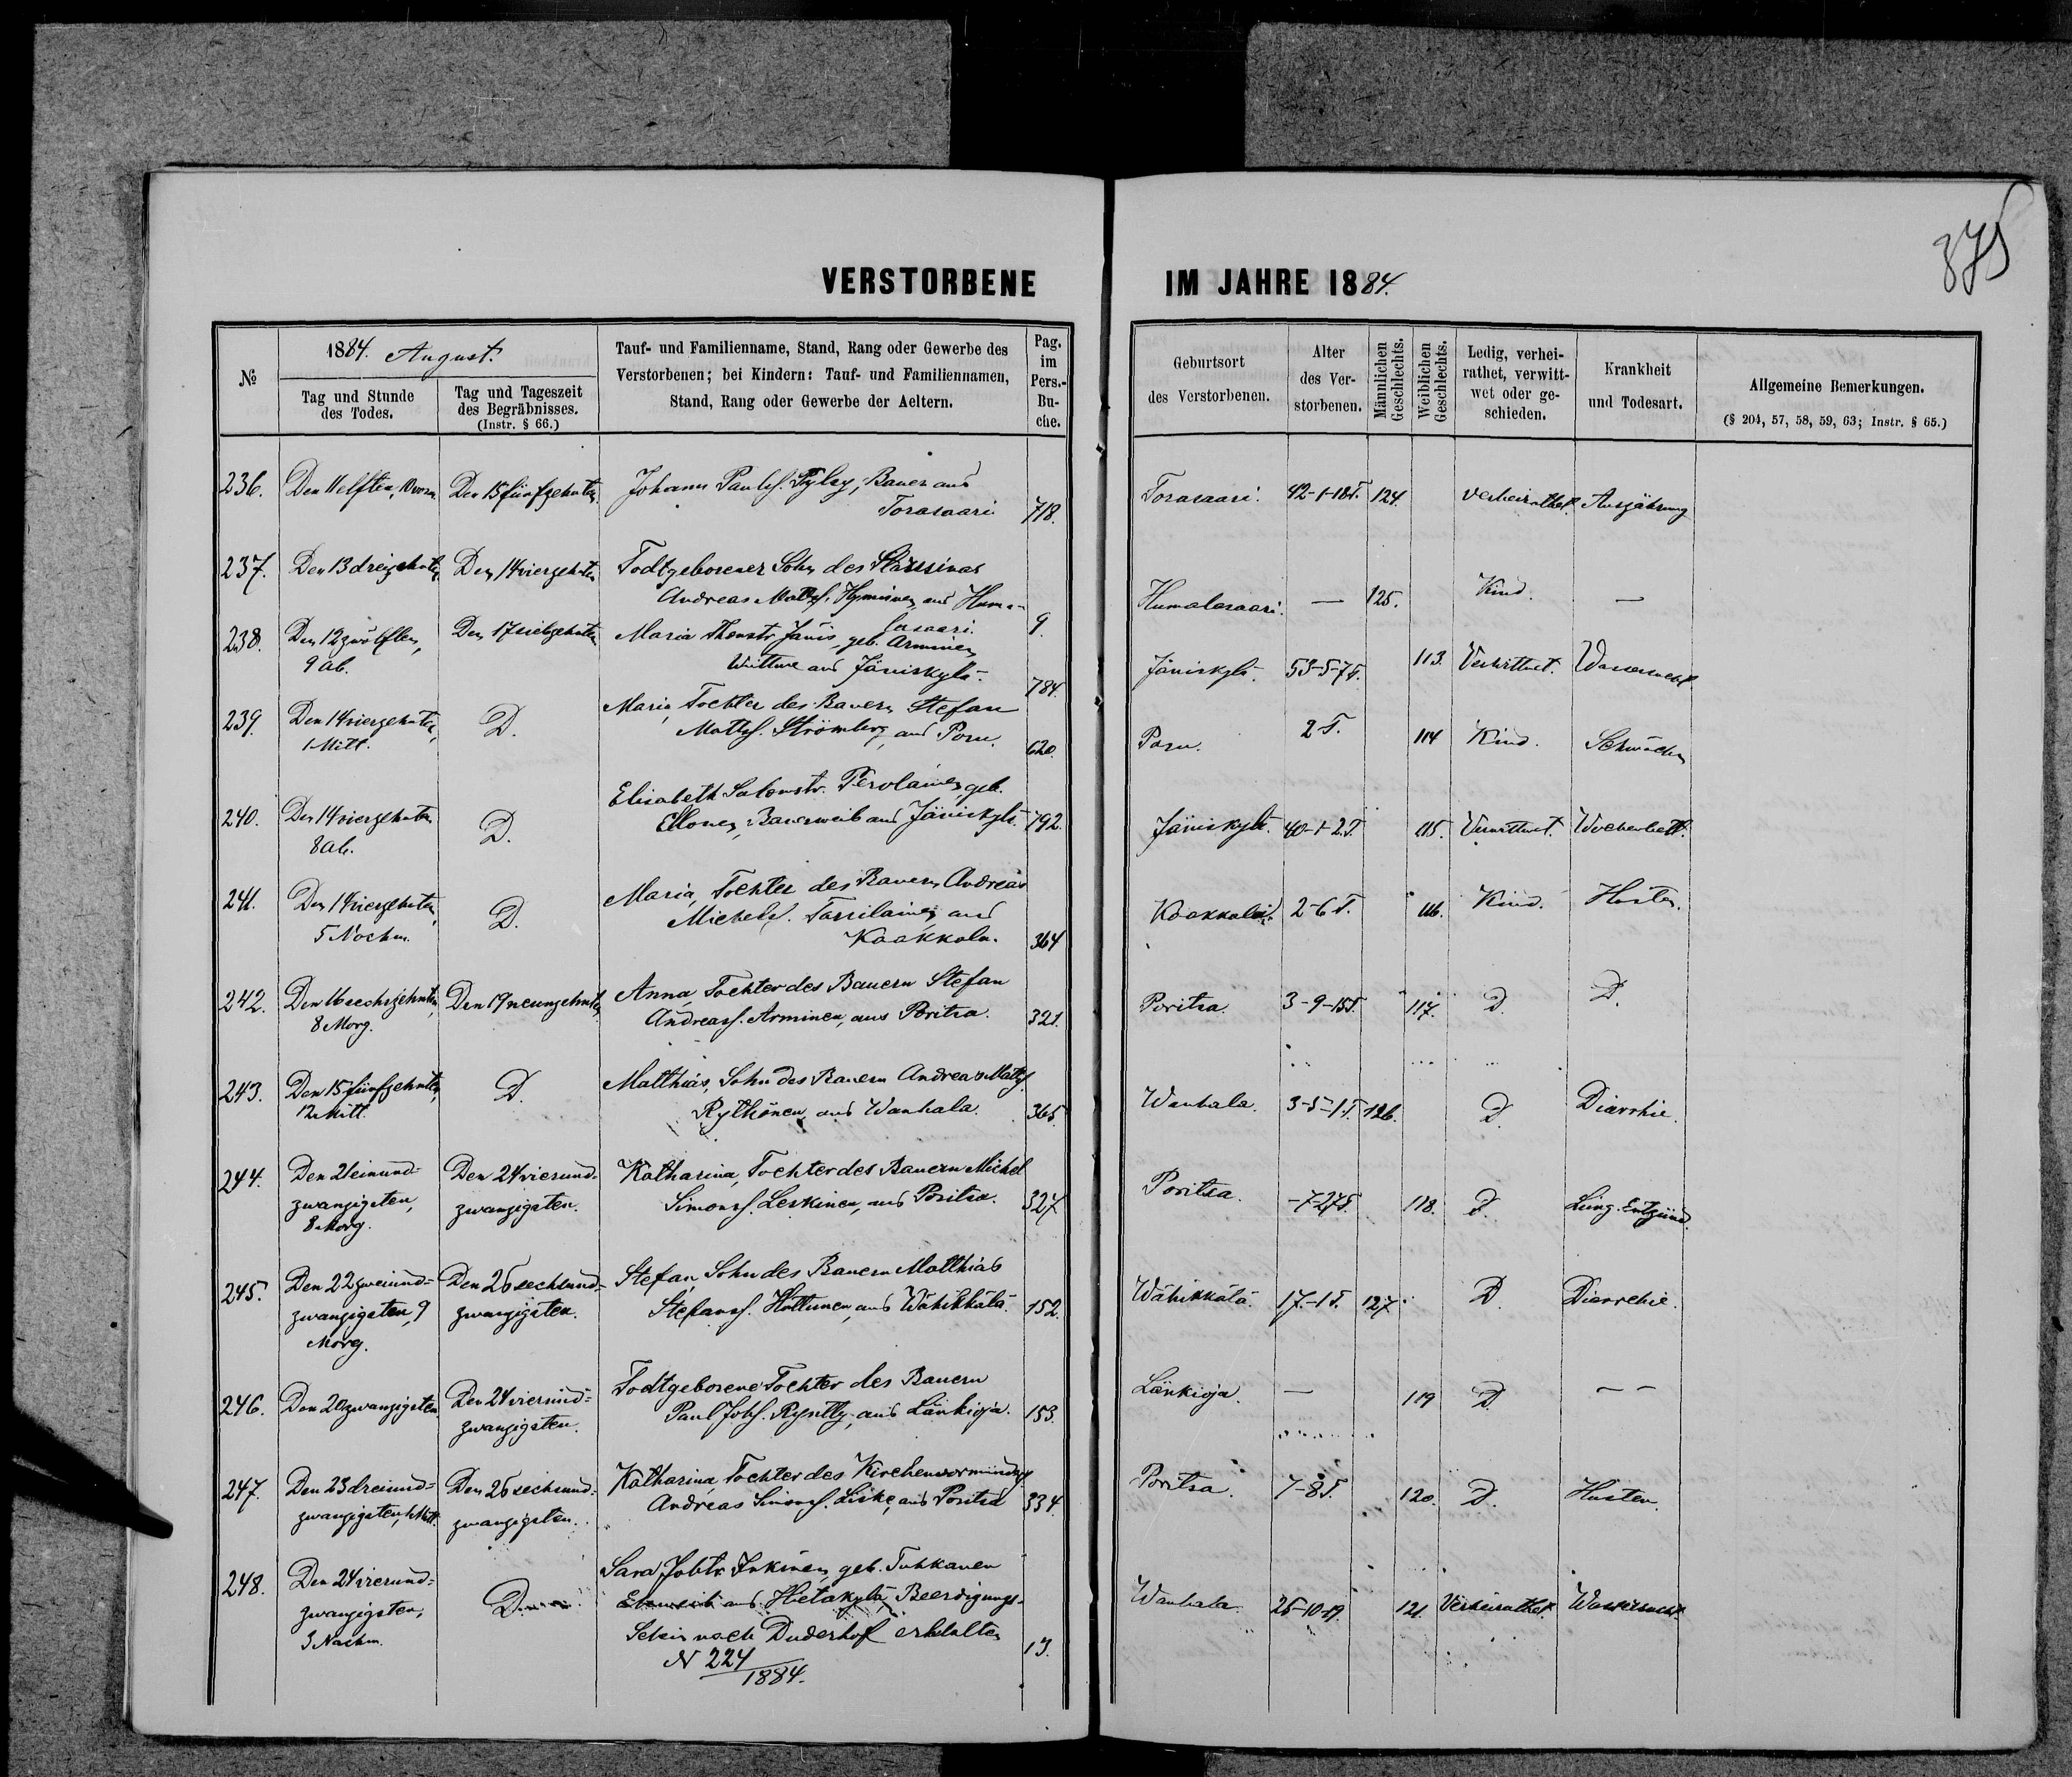 875
VERSTORBENE IM JAHRE 1884.
№
1884. August.
Tag und Stunde des Todes.
Tag und Tageszeit des Begräbnisses. (Instr. § 66.)
Tauf- und Familienname, Stand, Rang oder Gewerbe des Verstorbenen; bei Kindern: Tauf- und Familiennamen, Stand, Rang oder Gewerbe der Aeltern.
Pag. im Pers.-Buche.
Geburtsort des Verstorbenen.
Alter des Verstorbenen.
Männlichen Geschlechts.
Weiblichen Geschlechts.
Ledig, verheirathet, verwittwet oder geschieden.
Krankheit und Todesart.
Allgemeine Bemerkungen.
(§ 204, 57, 58, 59, 63; Instr. § 65.)
236. Den 11 elften, 10 vorm. Den 15 fünfzehnten Johann Paulss. Pylsy, Bauer aus
Torasaari 718. Torasaari. 42-1-18T. 124. verheirathet. Auszährung
237. Den 13 dreizehnten, Den 14 vierzehnten Todtgeborener Sohn des
Andreas Matths. Hyminen aus Huma-
lasaari. 9. Humalasaari. — 125. Kind. —
238. Den 12 zwölften, Den 17 siebzehnten Maria Thomstr. Jänis, geb. Arminen,
9 Ab. Wittwe aus Jäniskylä. 784. Jäniskylä. 53-5-7T. 113. Verwittwet. Wassersucht
239. Den 14 vierzehnten, D. Maria, Tochter des Bauern Stefan
1 Mitt. Matths. Strömberg, aus Poru. 620. Poru. 2 T. 114 Kind. Schwäche
240. Den 14 vierzehnten D. Elisabeth Salomstr. Terolainen, geb.
8 Ab. Ellonen, Bauerweib aus Jäniskylä. 792. Jäniskylä. 40-1-2T. 115. Verwittwet. Wochenbett.
241. Den 14 vierzehnten, D. Maria, Tochter des Bauern Andreas
5 Nachm. Michels. Tassilainen aus
Kaakkola. 364 Kaakkola. 2-6 T. 116. Kind. Husten.
242. Den 16 sechszehnten, Den 19 neunzehnten Anna, Tochter des Bauern Stefan
8 Morg. Andreass. Arminen, aus Poritsa. 321. Poritsa. 3-9-15T. 117. D. D.
243. Den 15 fünfzehnten, D. Matthias, Sohn des Bauern Andreas Matths.
12 Mitt. Rythönen, aus Wanhala. 365. Wanhala. 3-5-1T. 126. D. Diarrhie.
244. Den 21 einund- Den 24 vierund- Katharina, Tochter des Bauern Michel
zwanzigsten, zwanzigsten. Simonss. Leskinen, aus Poritsa. 327 Poritsa. -7-27T. 118. D. Lung. Entzünd.
8 Morg.
245. Den 22 zweiund= Den 26 sechsund= Stefan, Sohn des Bauern Matthias
zwanzigsten, 9 zwanzigsten. Stefanss. Hattunen, aus Wähikkälä. 152. Wähikkälä. 17.-1T. 127. D. Diarrehie.
Morg.
246. Den 20 zwanzigsten. Den 24 vierund= Todtgeborene Tochter des Bauern
zwanzigsten. Paul Johs. Ryntty, aus Länkioja. 153. Länkioja. — 119 D. — —
247. Den 23 dreiund= Den 26 sechsund= Katharina, Tochter des Kirchenvormünders
zwanzigsten, Mitt. zwanzigsten. Andreas Simonss. Liske, aus Poritsa 334. Poritsa. 7-8T. 120. D. Husten.
248. Den 24 vierund= D. Sara Johtr. Inkinen, geb. Tuhkanen
zwanzigsten, Eheweib aus Hietakylä, Beerdigungs-
3 Nachm. Schein nach Duderhof erhalten
N 224/1884. 13. Wanhala. 25-10-19. 121. Verheirathet. Wassersucht